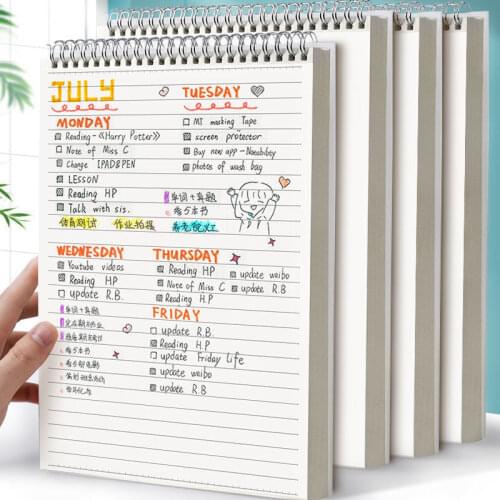 JULY
MONDAY
Reading-《Harry Potter》
Note of Miss C
Change IPAD&PEN
LESSON
Reading HP
Talk with sis.
体育测试 作业拍摄
TUESDAY
MT masking Tape
screen protector
Buy new app-Noteability
photos of wash bag
单词+真题
看5本书
WEDNESDAY
Youtube videos
Reading HP
update R.B.
单词+真题
看5本书
THURSDAY
Reading HP
Note of Miss C
Reading H.P
update weibo
update R.B
FRIDAY
update R.B.
Reading H.P
update Friday Life
update weibo
update R.B